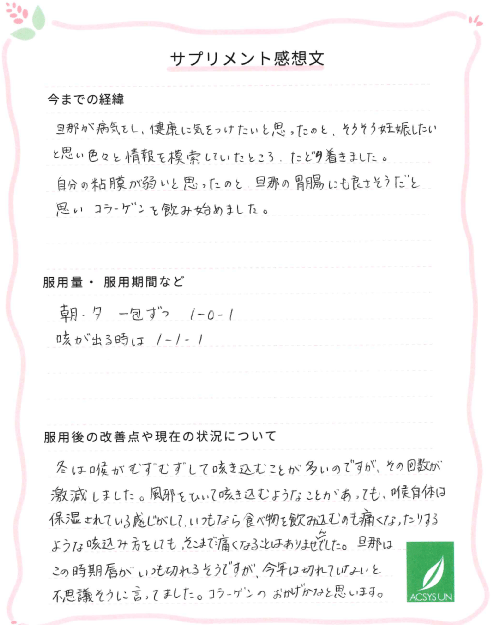 サプリメント感想文
今までの経緯
旦那が病気をし、健康に気をつけたいと思ったのと、そろそろ妊娠したい
と思い色々と情報を模索していたところ、たどり着きました。
自分の粘膜が弱いと思ったのと、旦那の胃腸にも良さそうだと
思い コラーゲンを飲み始めました。
服用量・服用期間など
朝・夕 一包ずつ 1-0-1
咳が出る時は 1-1-1
服用後の改善点や現在の状況について
冬は喉がむずむずして咳き込むことが多いのですが、その回数が
激減しました。風邪をひいて咳き込むようなことがあっても、喉自体は
保湿されている感じがして、いつもなら食べ物を飲み込むのも痛くなったりする
ような咳込み方をしても、そこまで痛くなることはありませんでした。旦那は
この時期唇がいつも切れるそうですが、今年は切れていないと
不思議そうに言ってました。コラーゲンのおかげかなと思います。
ACSYS UN